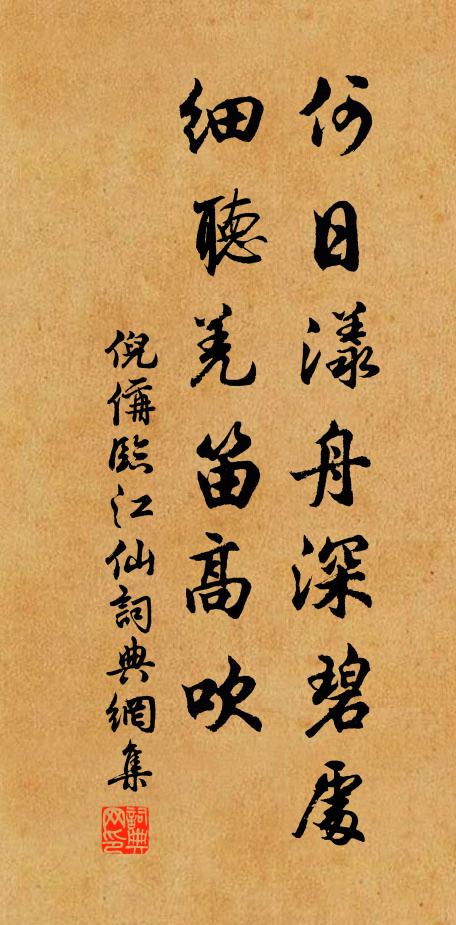 何日漾舟深碧處
細聽羌笛高吹
倪偁臨江仙詞典網集
詞典
网印